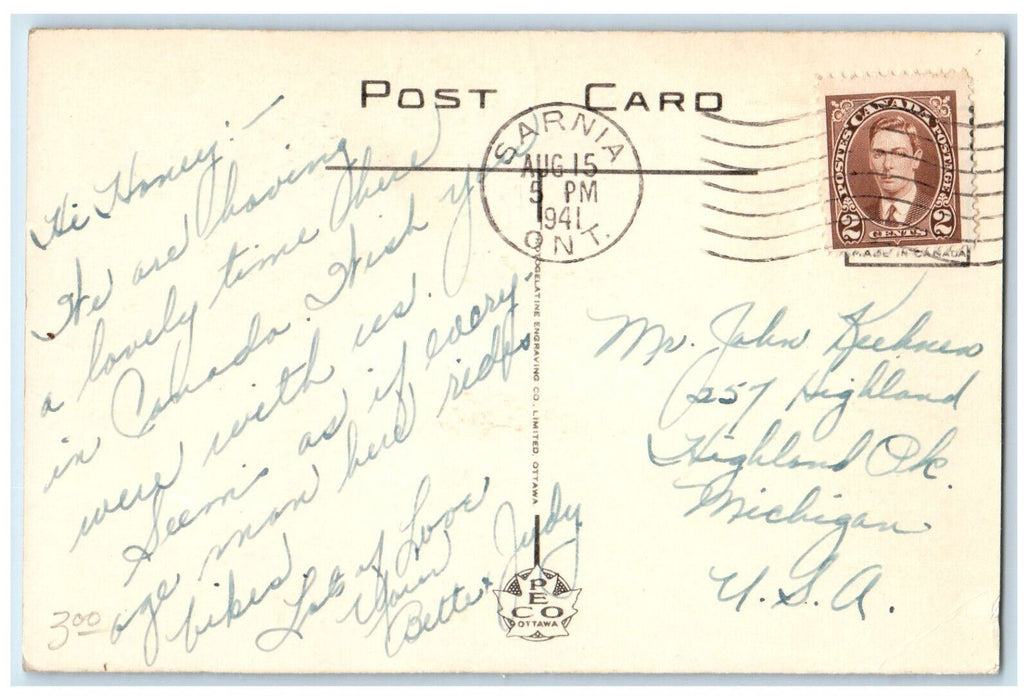 POST CARD
SARNIA
AUG 15
5 PM
1941
ONT.
POSTES CANADA POSTAGE
2 CENTS 2
MADE IN CANADA
Hi Honey:-
We are having
a lovely time here
in Canada. Wish you
were with us.
Seems as if every
age man here rides
bikes
Lots of Love
Your
Bette + Judy
Mr. John
257 Highland
Highland Pk.
Michigan
U.S.A.
PHOTOGELATINE ENGRAVING CO., LIMITED, OTTAWA
PECO
OTTAWA
3.00